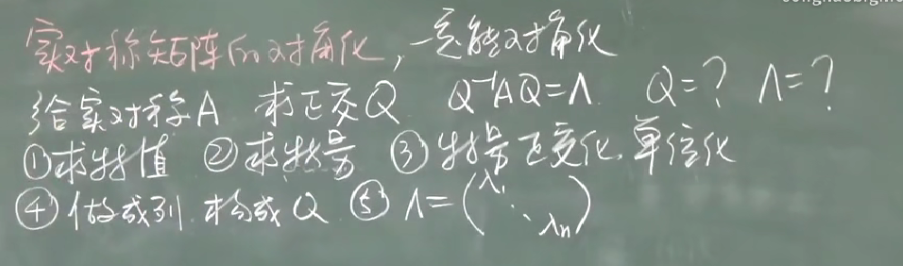 实对称矩阵的对角化，一定能对角化
给实对称A 求正交Q Q⁻¹AQ=Λ Q=? Λ=?
①求特值 ②求特号 ③特号正交化 单位化
④做成列 构成Q ⑤Λ=(λ₁ ⋱ λn)